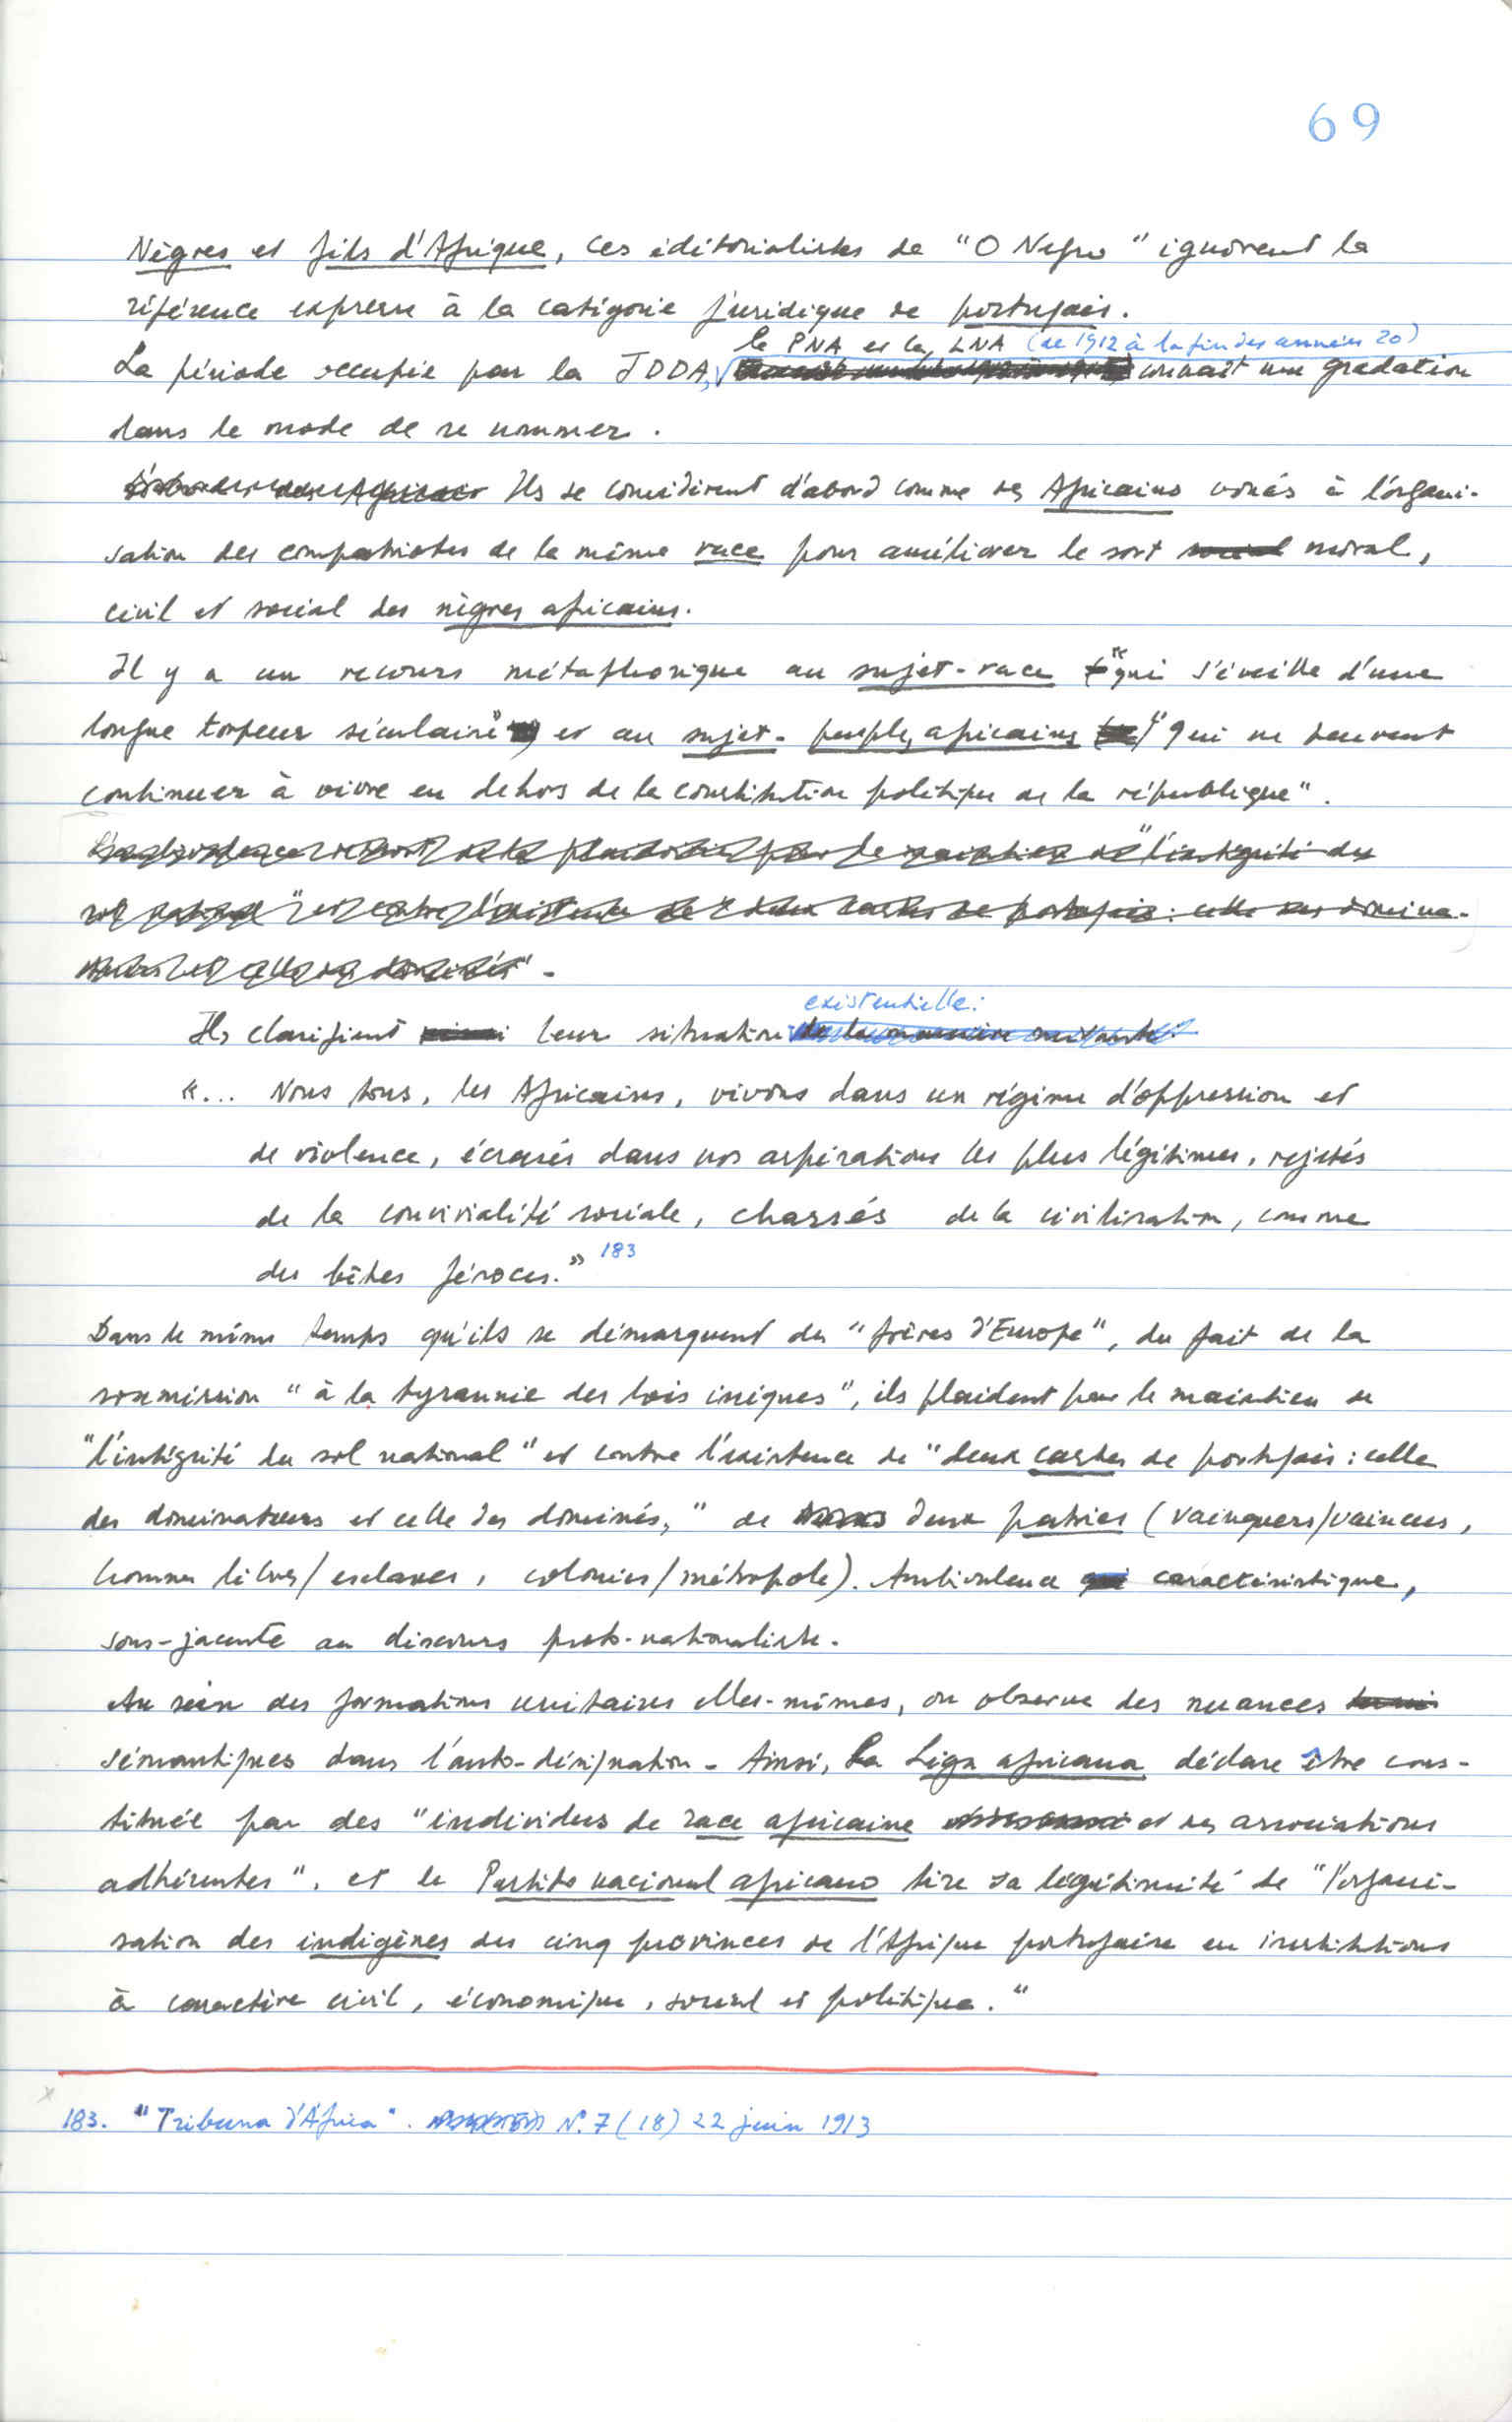 69
Nègres et fils d'Afrique, ces éditorialistes de "O Negro" ignorent la
référence expresse à la catégorie juridique de portugais.
le PNA et la LNA (de 1912 à la fin des années 20)
La période occupée par la JDDA, connaît une gradation
dans le mode de se nommer.
Ils se considèrent d'abord comme des Africains voués à l'organi-
sation des compatriotes de la même race pour améliorer le sort social moral,
civil et social des nègres africains.
Il y a un recours métaphorique au sujet-race "qui s'éveille d'une
longue torpeur séculaire" et au sujet-peuples africains "qui ne peuvent
continuer à vivre en dehors de la constitution politique de la république".
plaidoirie pour le maintien de "l'intégrité du
sol national" et contre l'existence de "deux castes de portugais : celle des domina-
teurs et celle des dominés".
existentielle :
Ils clarifient ainsi leur situation de la manière suivante :
«... Nous tous, les Africains, vivons dans un régime d'oppression et
de violence, écrasés dans nos aspirations les plus légitimes, rejetés
de la convivialité sociale, chassés de la civilisation, comme
des bêtes féroces.» 183
Dans le même temps qu'ils se démarquent des "frères d'Europe", du fait de la
soumission "à la tyrannie des lois iniques", ils plaident pour le maintien de
"l'intégrité du sol national" et contre l'existence de "deux castes de portugais : celle
des dominateurs et celle des dominés," de deux patries (vainqueurs/vaincus,
hommes libres/esclaves, colonies/métropole). Ambivalence qui caractéristique,
sous-jacente au discours proto-nationaliste.
Au sein des formations unitaires elles-mêmes, on observe des nuances
sémantiques dans l'auto-désignation. Ainsi, la Liga africana déclare être cons-
tituée par des "individus de race africaine et des associations
adhérentes", et le Partido nacional africano tire sa légitimité de "l'organi-
sation des indigènes des cinq provinces de l'Afrique portugaise en institutions
à caractère civil, économique, social et politique."
183. "Tribuna d'Africa". N.7 (18) 22 juin 1913